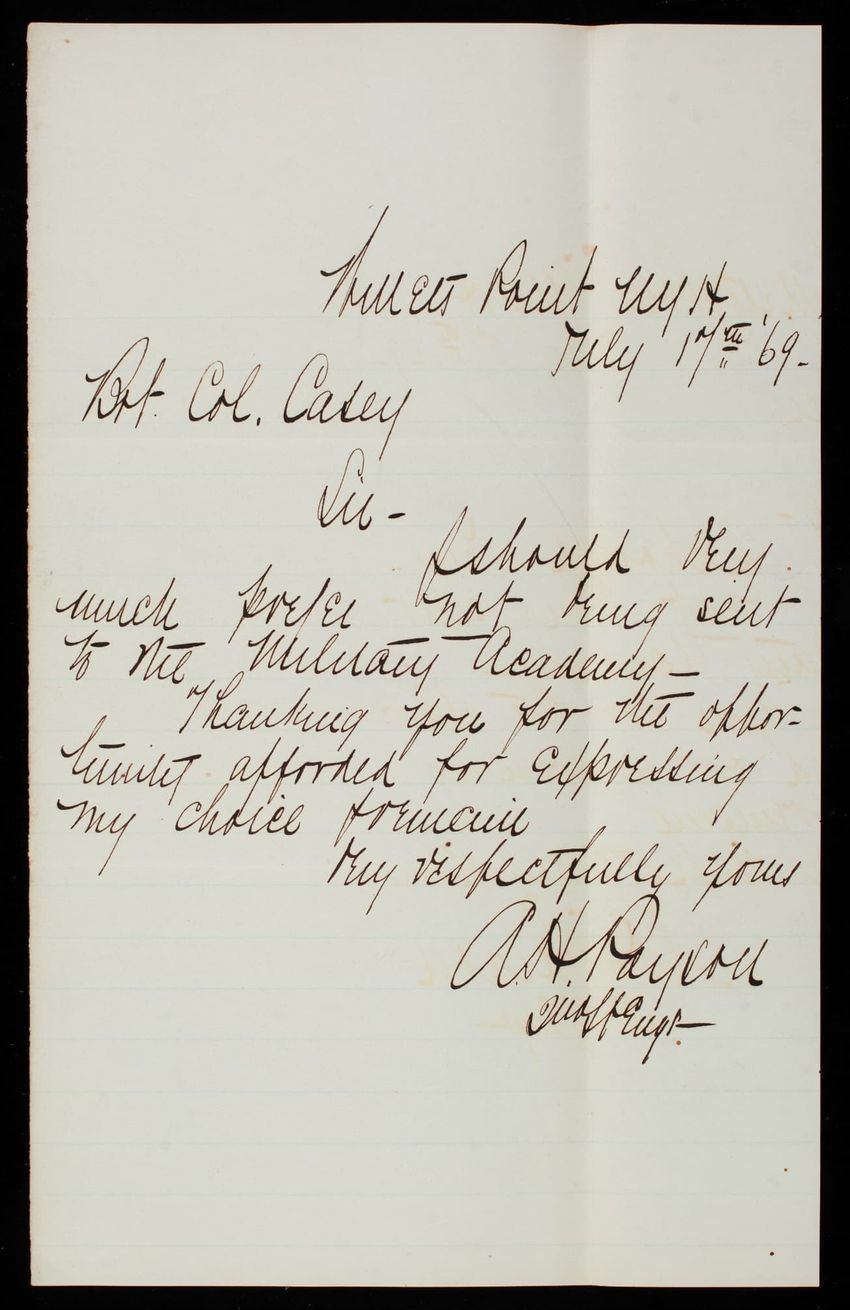 Willets Point N.Y.H.
July 17th '69.
Bvt. Col. Casey
Sir -
I should very
much prefer not being sent
to the Military Academy -
Thanking you for the oppor-
tunity afforded for expressing
my choice I remain
Very respectfully yours
A.H. Payson
Engr -